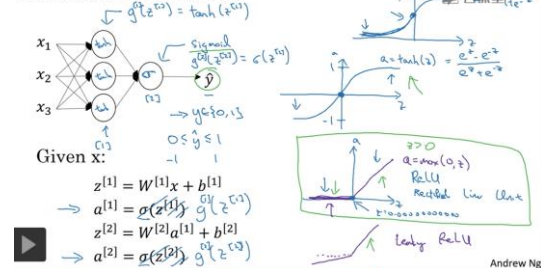 g^[1](z^[1]) = tanh(z^[1])
x₁
x₂
x₃
tanh
tanh
tanh
[1]
σ
[2]
sigmoid
g^[2](z^[2]) = σ(z^[2])
ŷ
→ y ∈ {0, 1}
0 ≤ ŷ ≤ 1
-1 1
Given x:
z^[1] = W^[1]x + b^[1]
→ a^[1] = σ(z^[1]) g^[1](z^[1])
z^[2] = W^[2]a^[1] + b^[2]
→ a^[2] = σ(z^[2]) g^[2](z^[2])
z
a
1
-1
z
a = tanh(z) = (e^z - e^-z) / (e^z + e^-z)
a
z
z>0
a = max(0, z)
ReLU
Rectified Linear Unit
Leaky ReLU
Andrew Ng